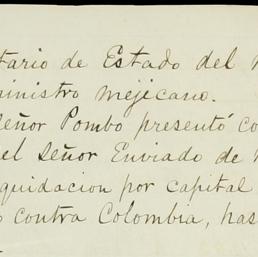 tario de Estado del
ministro mejicano.
señor Pombo presentó co
el señor Enviado de
quidacion por capital
contra Colombia, has